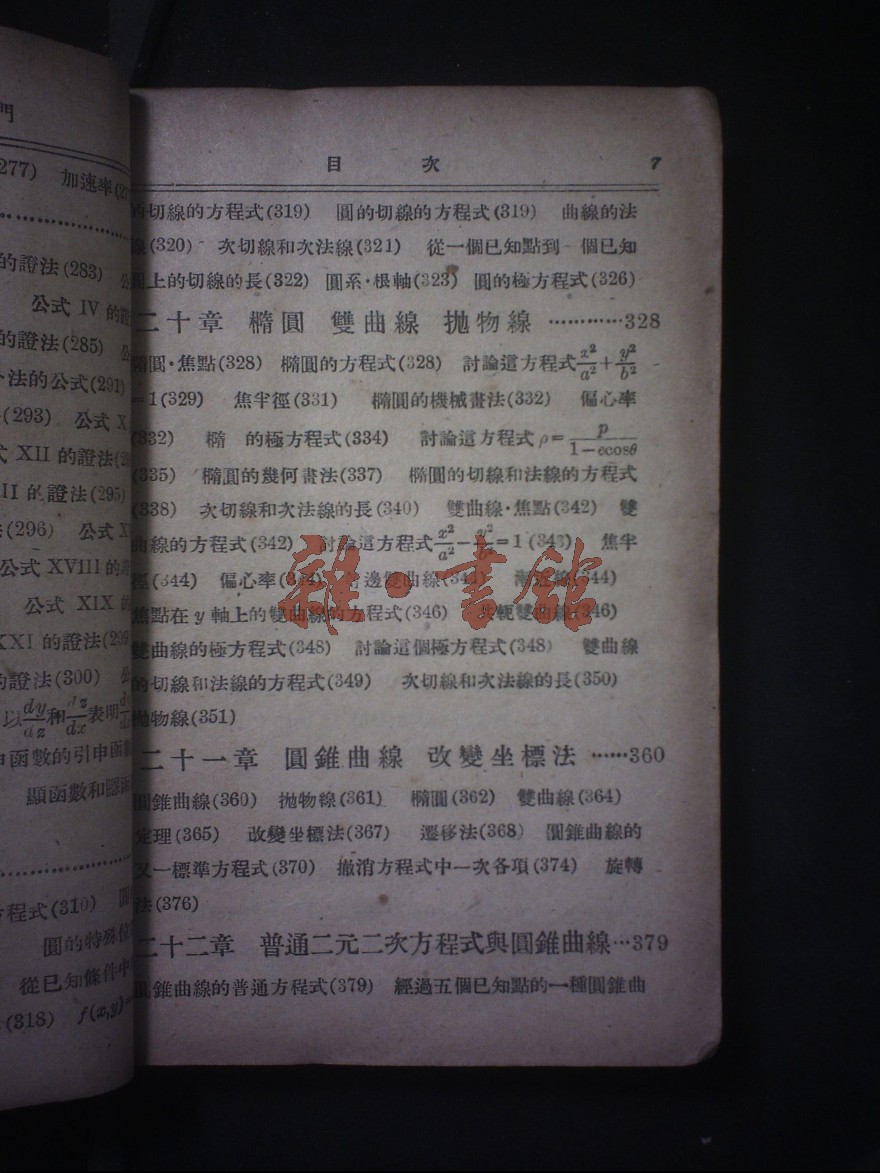 門
277) 加速率(27
的證法(283) 公
公式 IV 的證
的證法(285) 公
法的公式(291)
(293) 公式 X
式 XII 的證法(29
III 的證法(295)
(296) 公式 X
公式 XVIII 的證
公式 XIX 的
XXI 的證法(299
的證法(300) 公
以dy/dz和dz/dx表明
函數的引申函數
顯函數和隱函
方程式(310) 圓
圓的特殊位
從已知條件中
(318) f(x,y)=
目 次 7
的切線的方程式(319) 圓的切線的方程式(319) 曲線的法
線(320) 次切線和次法線(321) 從一個已知點到一個已知
圓上的切線的長(322) 圓系·根軸(323) 圓的極方程式(326)
二十章 橢圓 雙曲線 拋物線 …………328
橢圓·焦點(328) 橢圓的方程式(328) 討論這方程式x²/a²+y²/b²
=1(329) 焦半徑(331) 橢圓的機械畫法(332) 偏心率
(332) 橢 的極方程式(334) 討論這方程式ρ=p/(1−ecosθ)
(335) 橢圓的幾何畫法(337) 橢圓的切線和法線的方程式
(338) 次切線和次法線的長(340) 雙曲線·焦點(342) 雙
曲線的方程式(342) 討論這方程式x²/a²−y²/b²=1(343) 焦半
徑(344) 偏心率(344) 等邊雙曲線(344) 漸近線(344)
焦點在 y 軸上的雙曲線的方程式(346) 共軛雙曲線(346)
雙曲線的極方程式(348) 討論這個極方程式(348) 雙曲線
的切線和法線的方程式(349) 次切線和次法線的長(350)
拋物線(351)
二十一章 圓錐曲線 改變坐標法 ……360
圓錐曲線(360) 拋物線(361) 橢圓(362) 雙曲線(364)
定理(365) 改變坐標法(367) 遷移法(368) 圓錐曲線的
又一標準方程式(370) 撤消方程式中一次各項(374) 旋轉
法(376)
二十二章 普通二元二次方程式與圓錐曲線…379
圓錐曲線的普通方程式(379) 經過五個已知點的一種圓錐曲
雜·書館